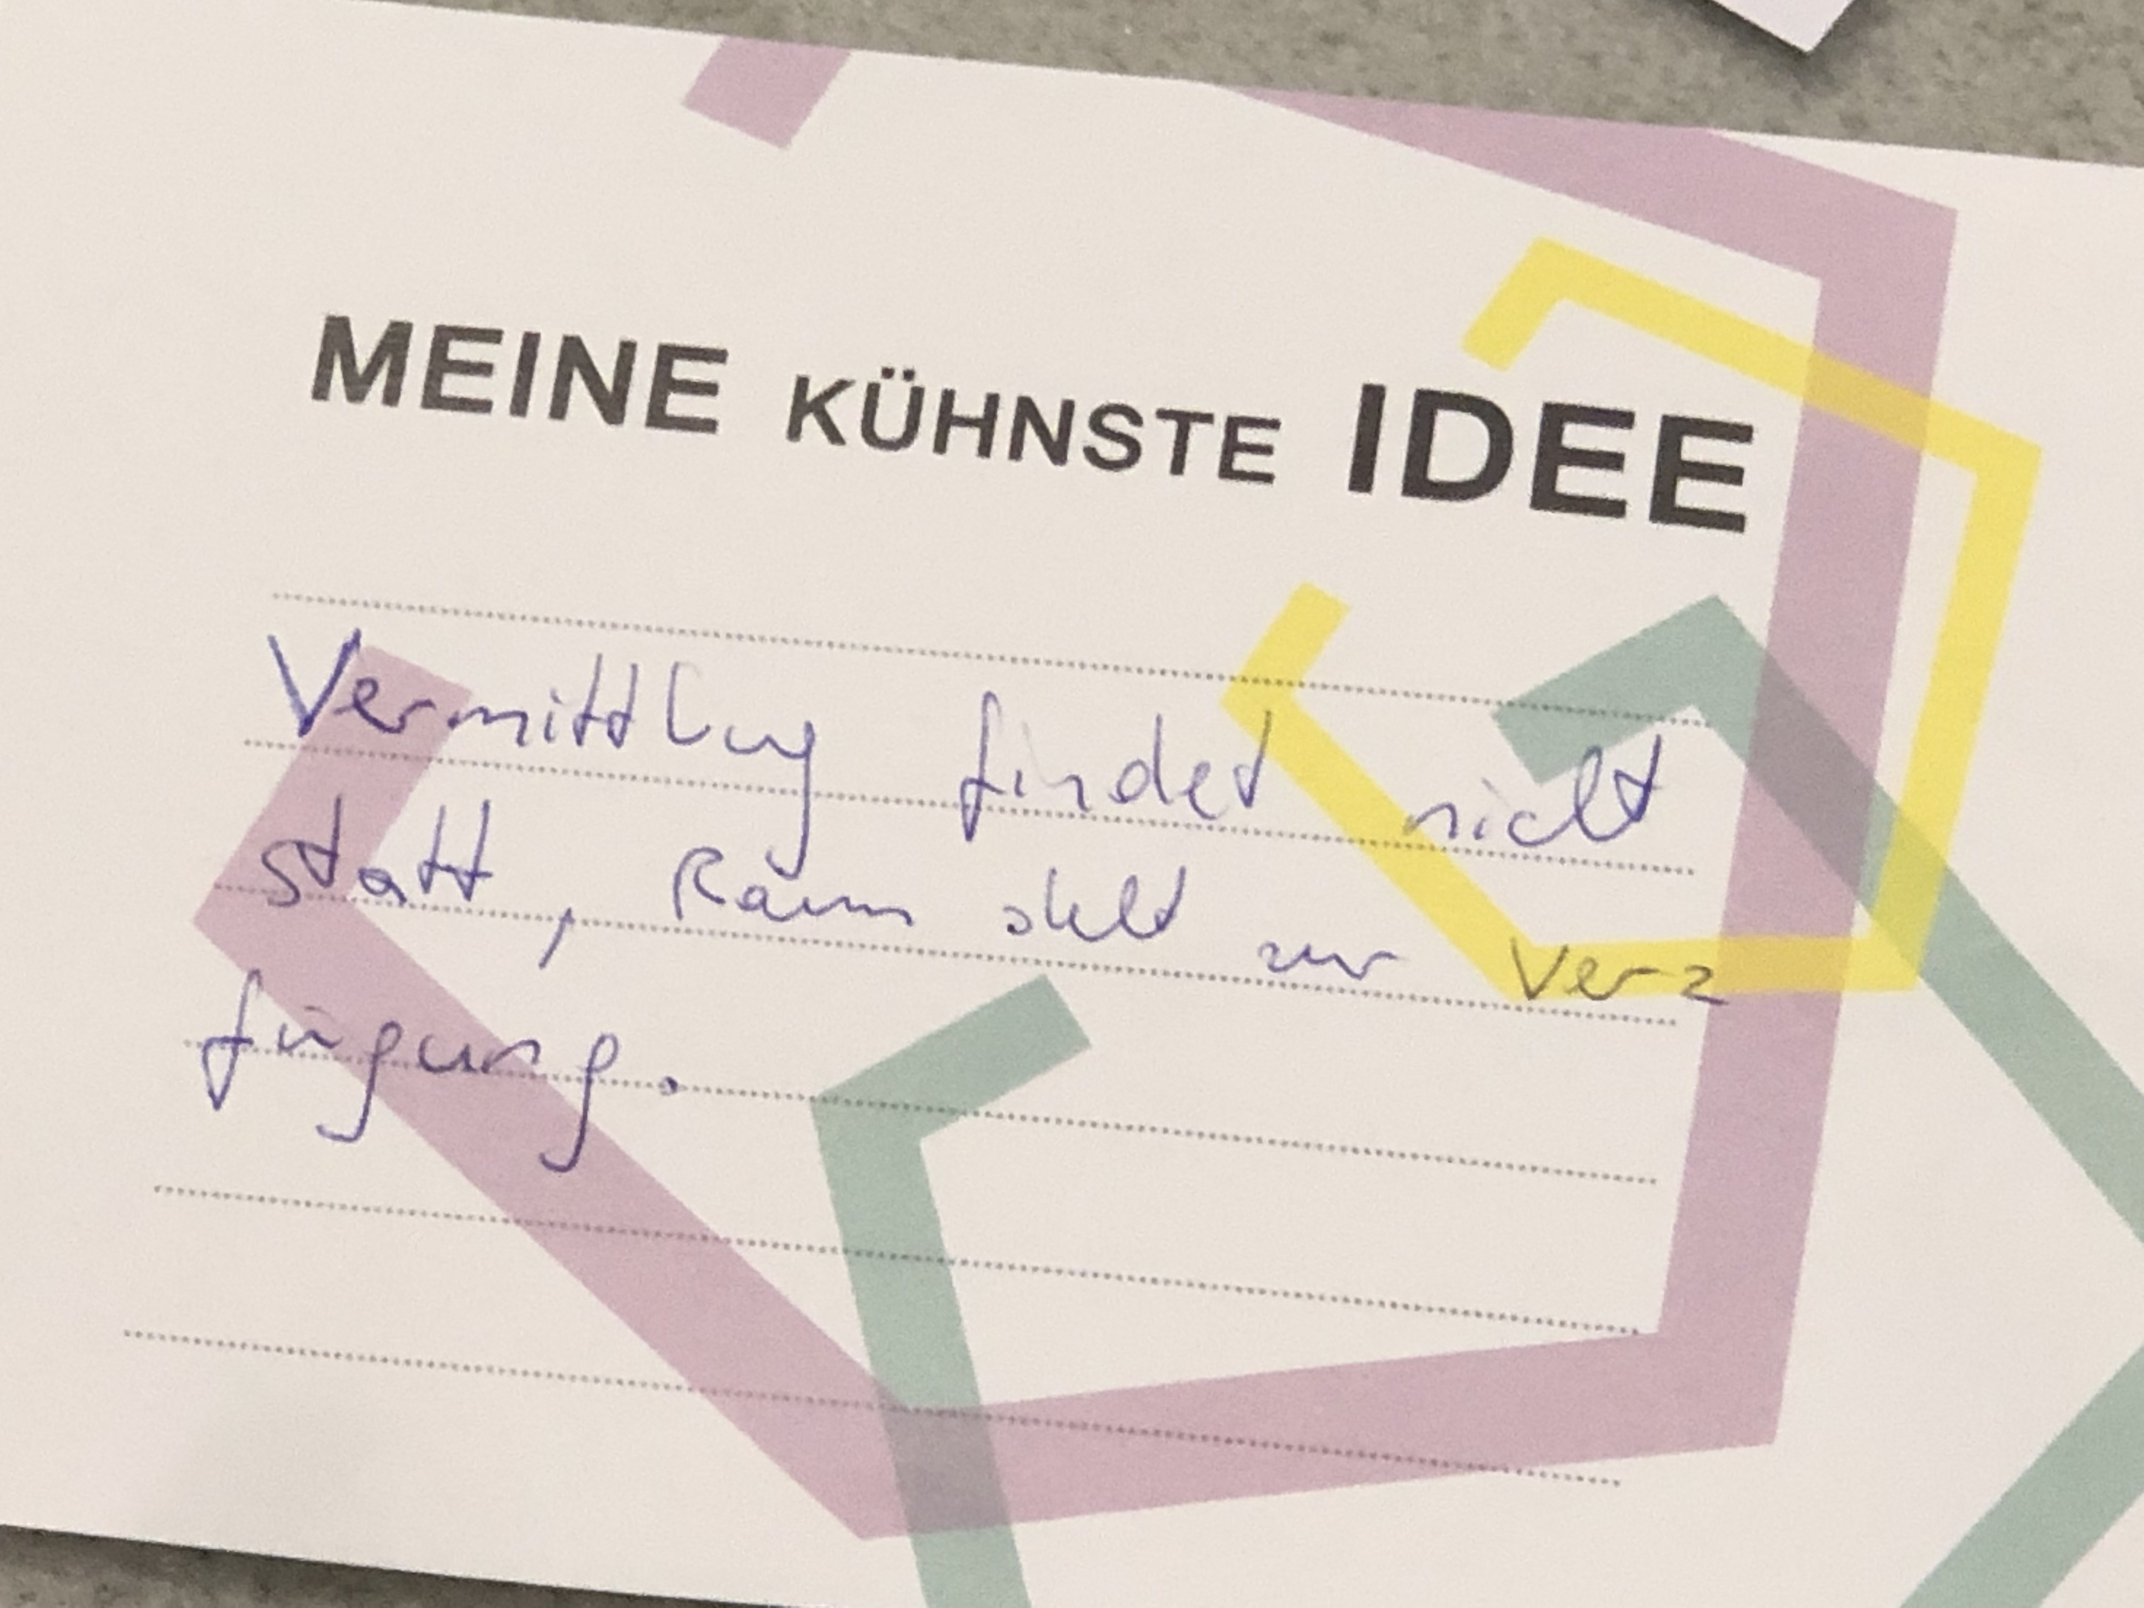 MEINE KÜHNSTE IDEE
Vermittlung findet nicht
statt, Raum steht zur Ver=
fügung.